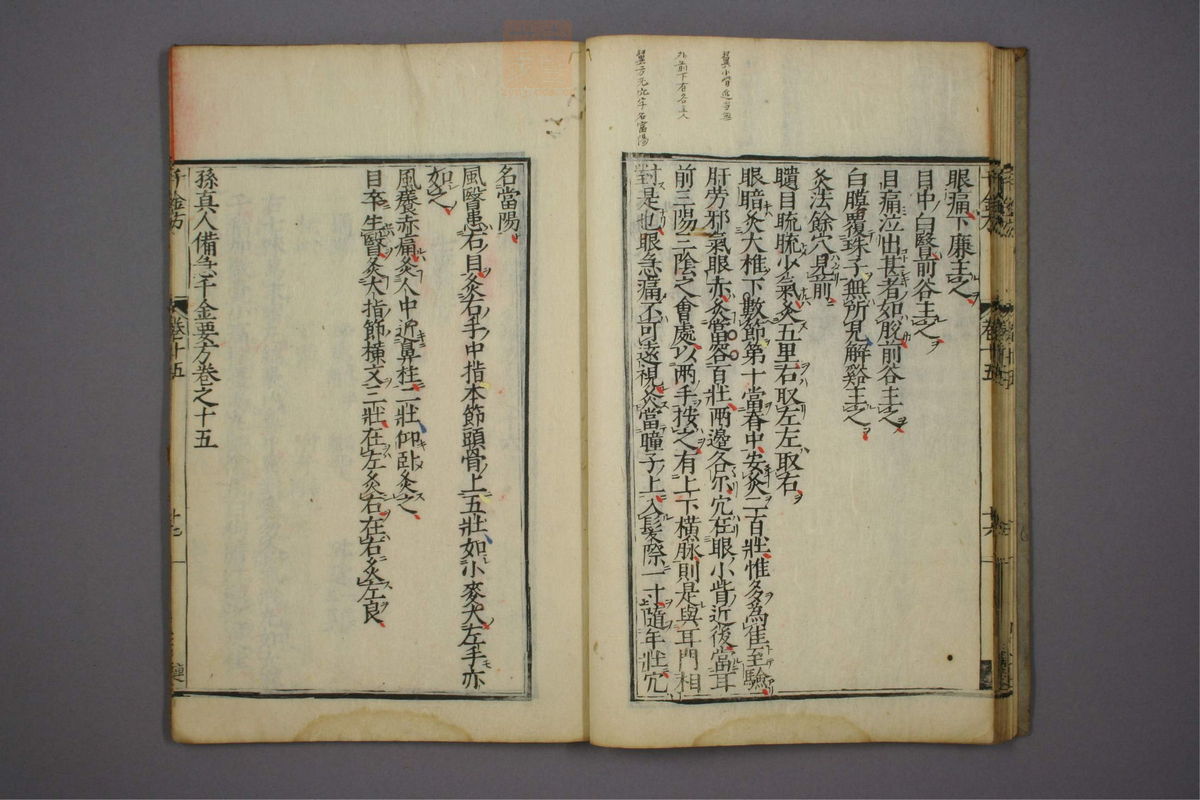 眼痛下廉主之
目中白瞖前谷主之
目痛泣出甚者如脫前谷主之
白膜覆珠子無所見解谿主之
灸法餘穴見前
䁾目䀮䀮少氣灸五里右取左左取右
眼暗灸大椎下數節第十當脊中安灸二百壯惟多為佳至驗
肝勞邪氣眼赤灸當容百壯兩邊各尒穴在眼小眥近後當耳
前三陽三陰之會處以兩手按之有上下橫脉則是與耳門相
對是也眼急痛不可遠視灸當瞳子上入髮際一寸隨年壯穴
名當陽
風瞖患右目灸右手中指本節頭骨上五壯如小麥大左手亦
如之
風癢赤痛灸人中近鼻柱二壯仰臥灸之
目卒生瞖灸大指節橫文三壯在左灸右在右灸左良
孫真人備急千金要方卷之十五
千金方
卷十五
十六
千金方
卷十五
十七